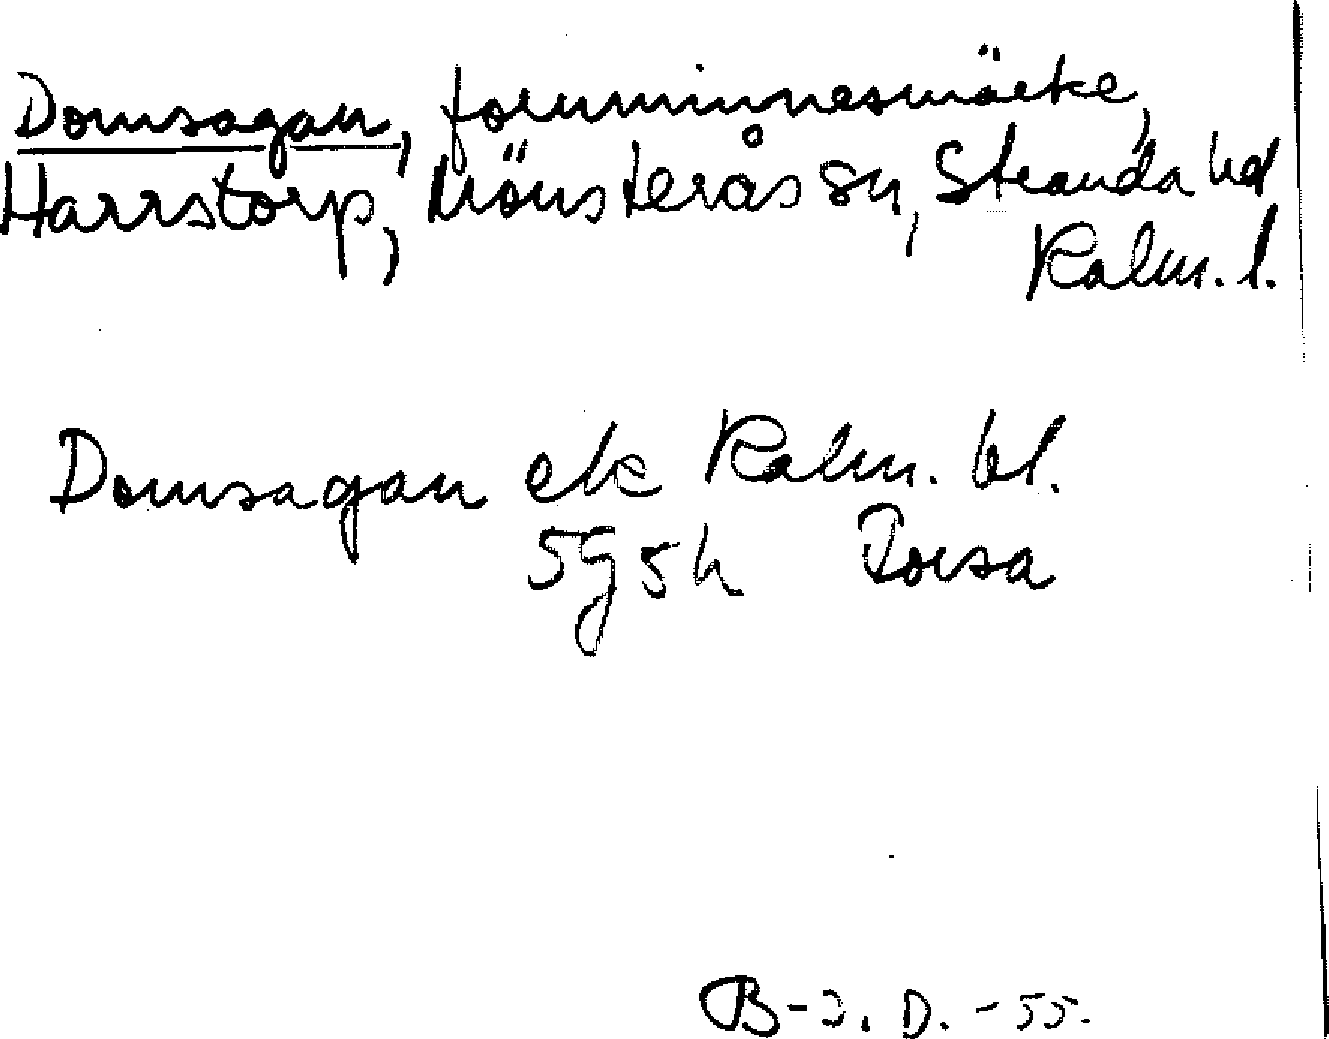 Domsagan, fornminnesmärke,
Harrstorp, Mönsterås sn, Stranda hd
Kalm. l.
Domsagan ek Kalm. bl.
5g5h Rorsa
B-J. D. -55.